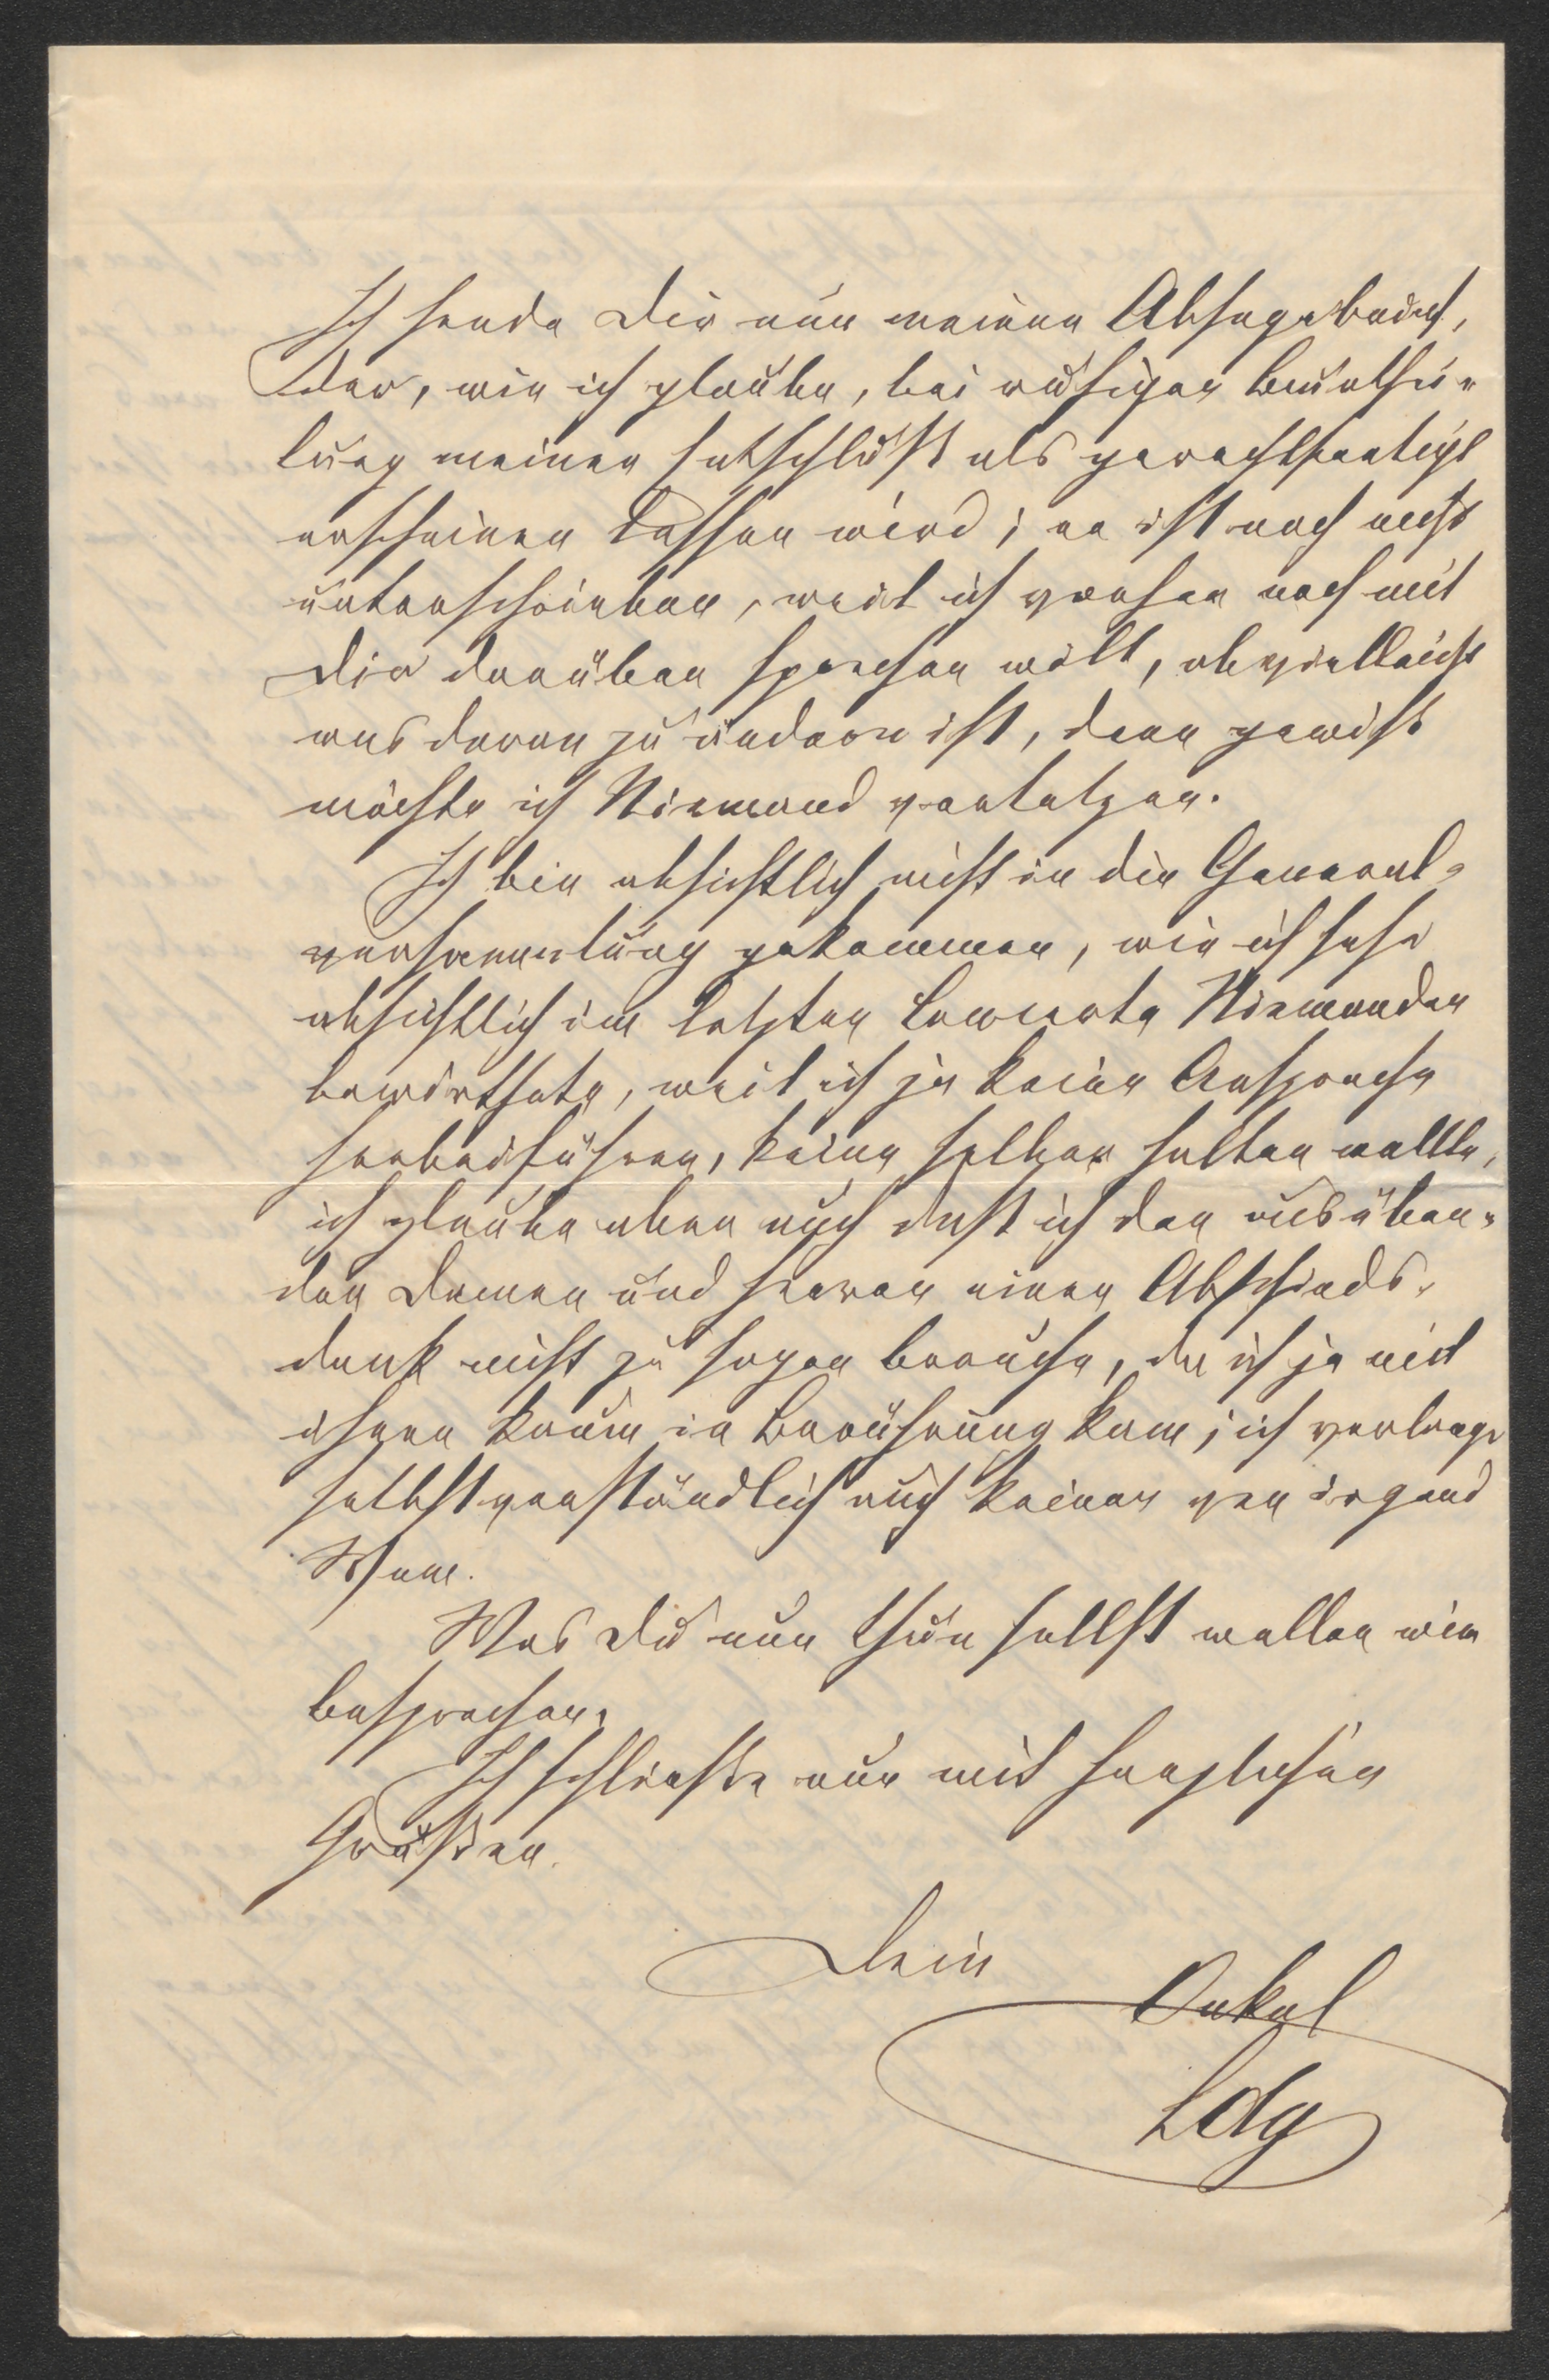 Ich sende Dir nun meinen Absagebrief,
der, wie ich glaube, bei ruhiger Beurthei-
lung meinen Entschluß als gerechtfertigt
erscheinen lassen wird; er ist noch nicht
unterschrieben, weil ich vorher noch mit
Dir darüber sprechen will, ob vielleicht
was daran zu ändern ist, denn gewiß
möchte ich Niemand verletzen.
Ich bin absichtlich nicht in die General-
versammlung gekommen, wie ich sehr
absichtlich im letzten Concerte Niemanden
bewirthete, weil ich ja keine Ansprache
herbeiführen, keine selber halten wollte,
ich glaube aber auch daß ich den ausüben-
den Damen und Herren einen Abschieds-
dank nicht zu sagen brauche, da ich ja mit
ihnen kaum in Berührung kam; ich verlange
selbstverständlich auch keinen von irgend
Wem.
Was Du nun thun sollst wollen wir
besprechen.
Ich schließe nun mit herzlichen
Grüßen.
Dein
Onkel
Ldg